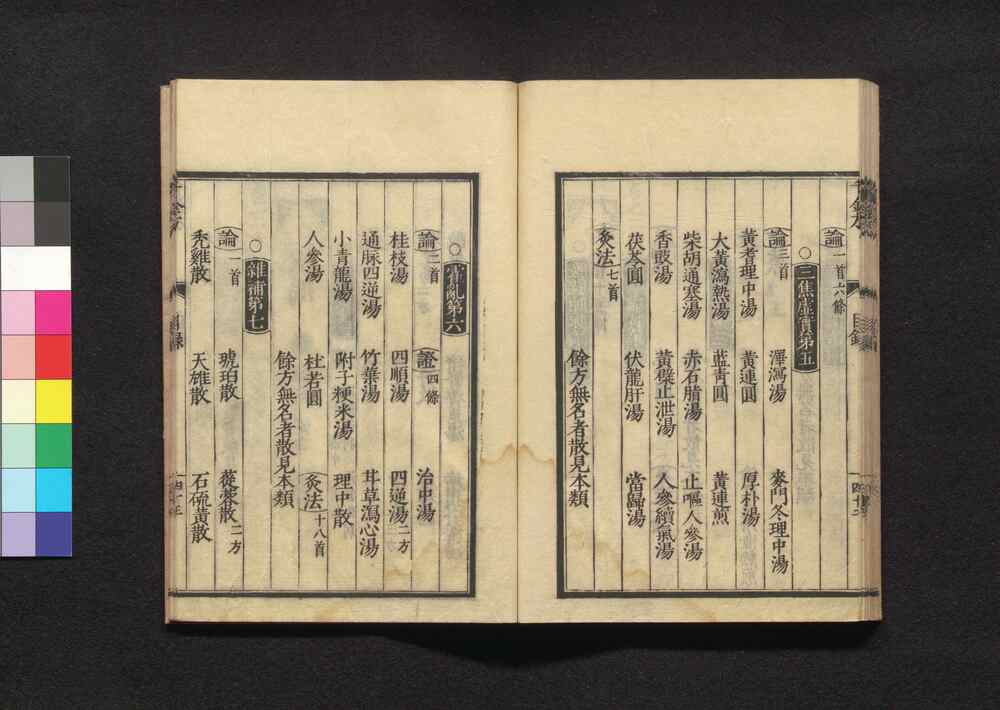 論一首 六條
○三焦虛實第五
論三首 澤瀉湯 麥門冬理中湯
黃耆理中湯 黃連圓 厚朴湯
大黃瀉熱湯 藍青圓 黃連煎
柴胡通塞湯 赤石脂湯 止嘔人參湯
香豉湯 黃蘗止泄湯 人參續氣湯
茯苓圓 伏龍肝湯 當歸湯
灸法七首
餘方無名者散見本類
○霍亂第六
論二首 證四條 治中湯
桂枝湯 四順湯 四逆湯二方
通脉四逆湯 竹葉湯 甘草瀉心湯
小青龍湯 附子粳米湯 理中散
人參湯 杜若圓 灸法十八首
餘方無名者散見本類
○雜補第七
論一首 琥珀散 蓯蓉散二方
禿雞散 天雄散 石硫黃散
目錄